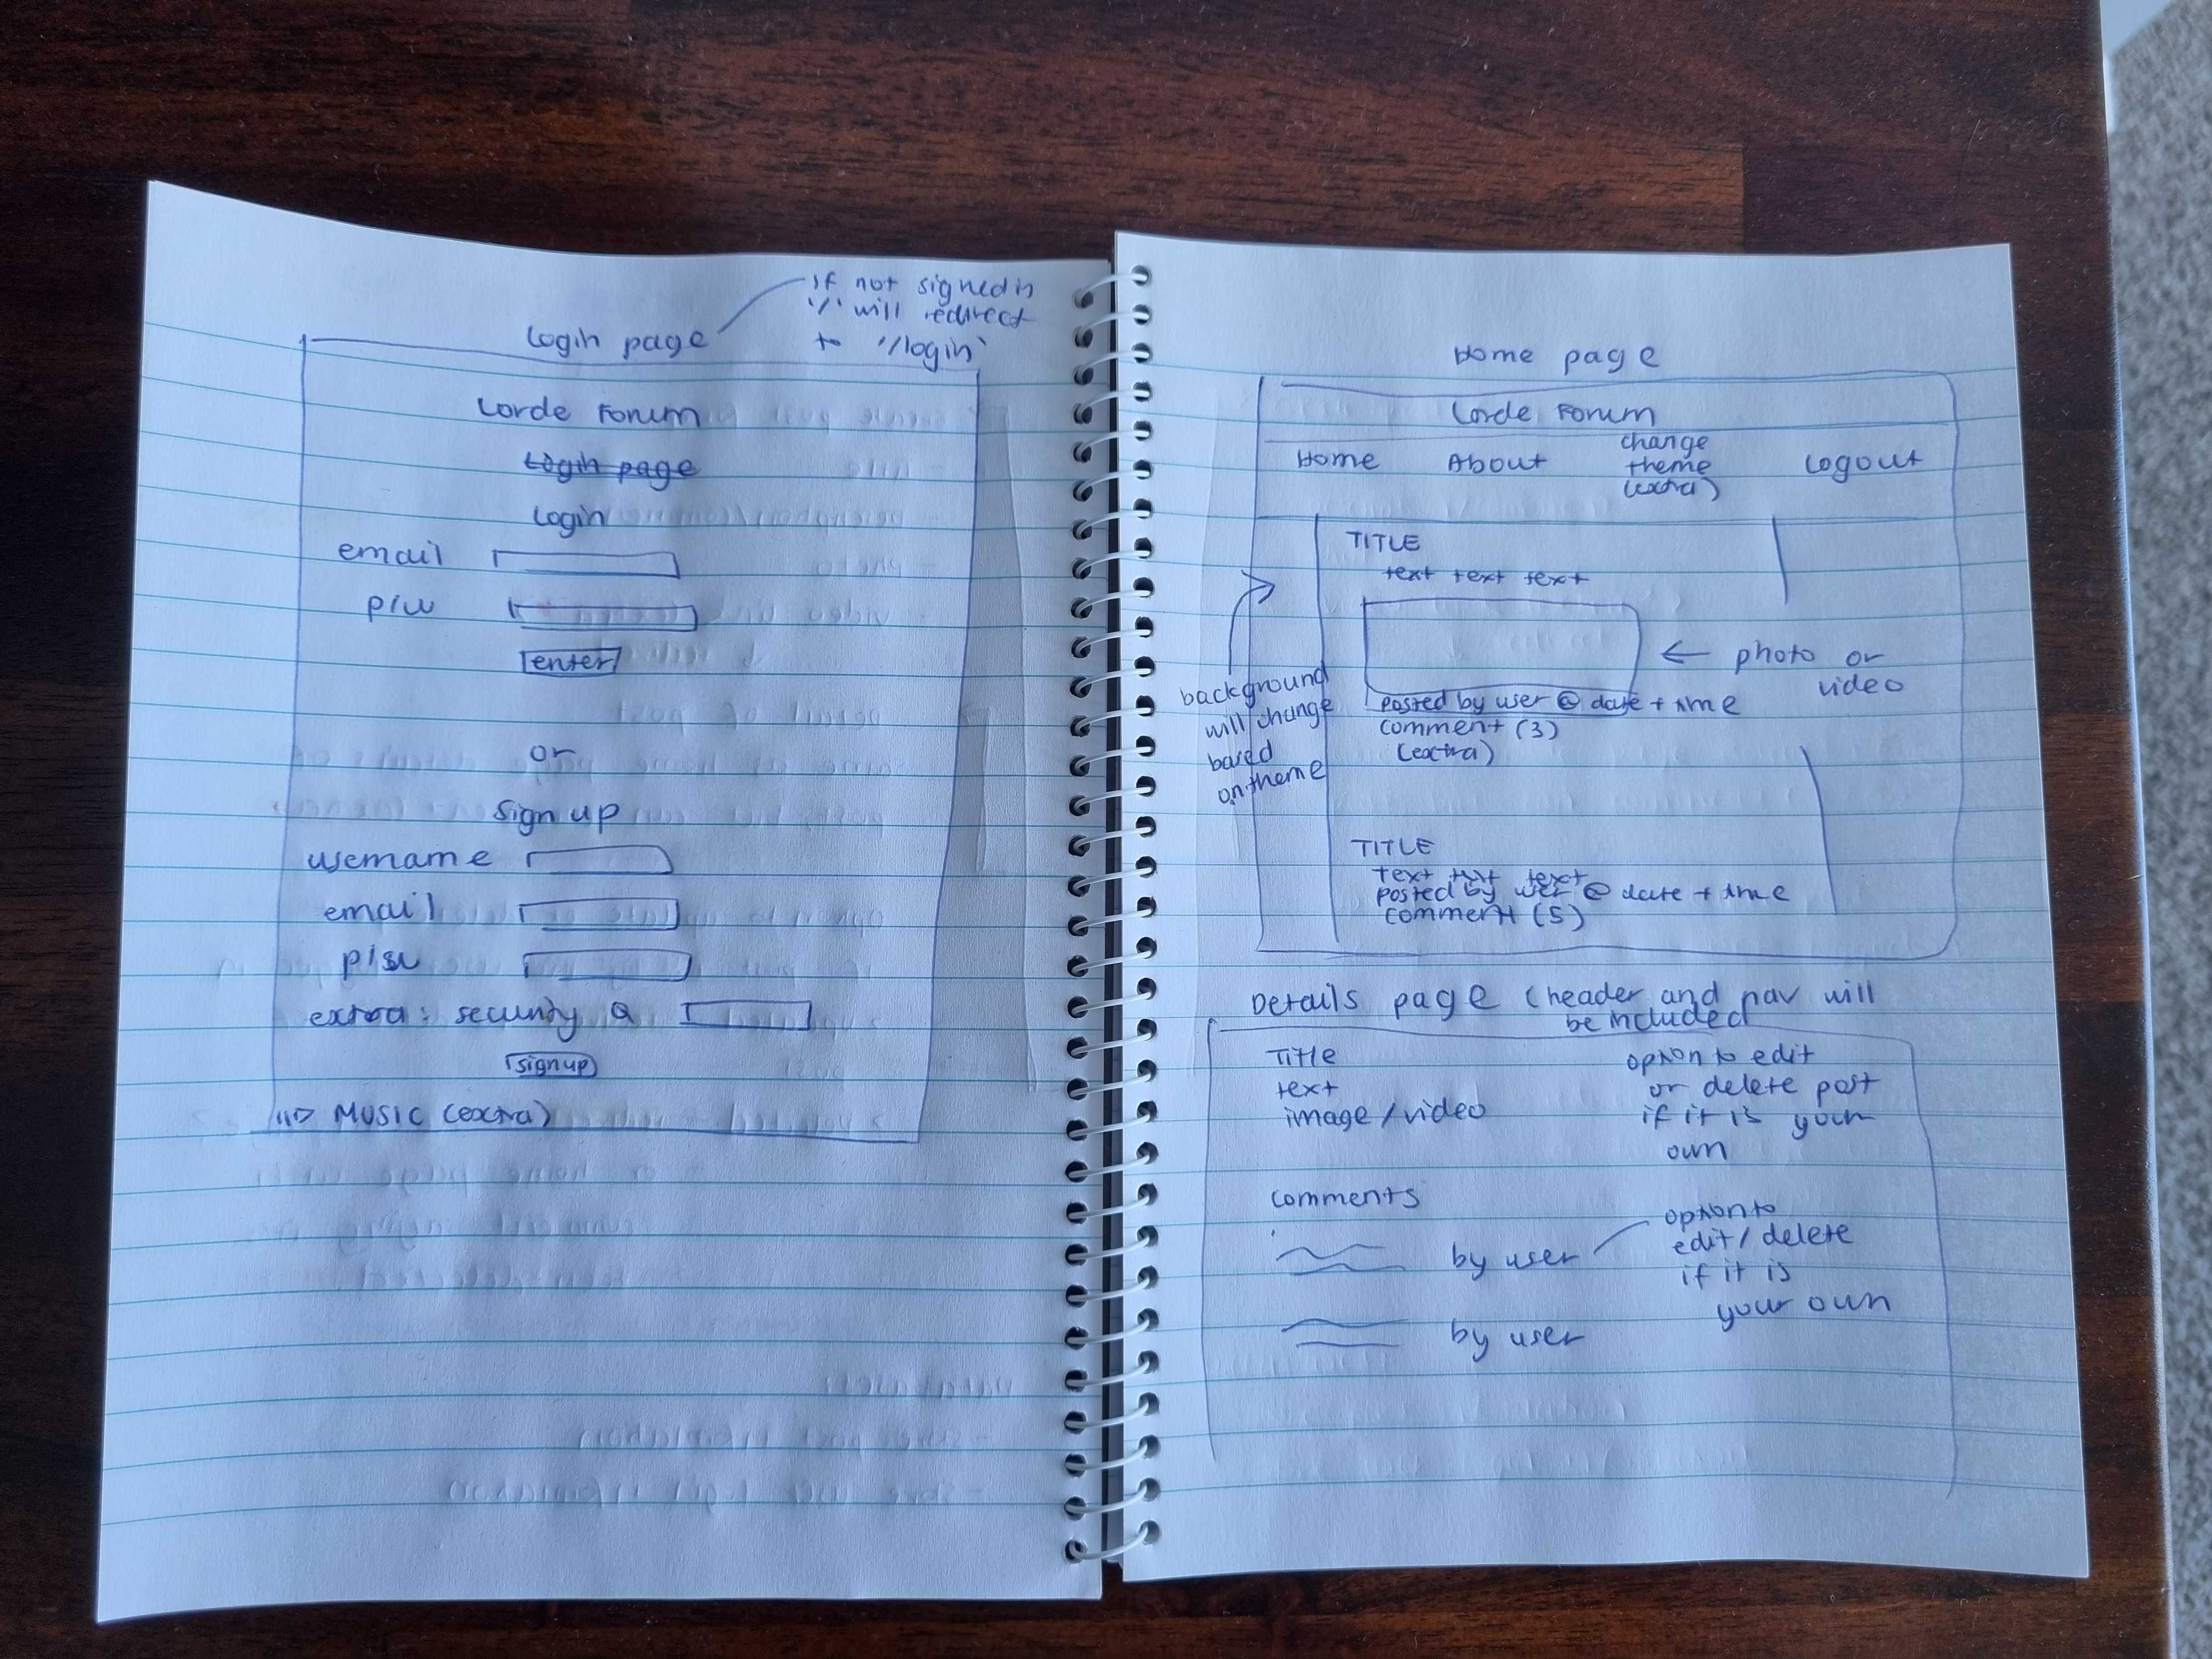 if not signed in
'/' will redirect
to '/login'
Login page
Lorde Forum
Login page
Login
email
p/w
enter
or
sign up
username
email
p/w
extra: security Q
signup
MUSIC (extra)
Home page
Lorde Forum
Home About change theme (extra) Logout
TITLE
text text text
← photo or
video
posted by user @ date + time
comment (3)
(extra)
background
will change
based
on theme
TITLE
text text text
posted by user @ date + time
comment (5)
Details page (header and nav will
be included
Title
text
image/video
option to edit
or delete post
if it is your
own
comments
by user
option to
edit/delete
if it is
your own
by user